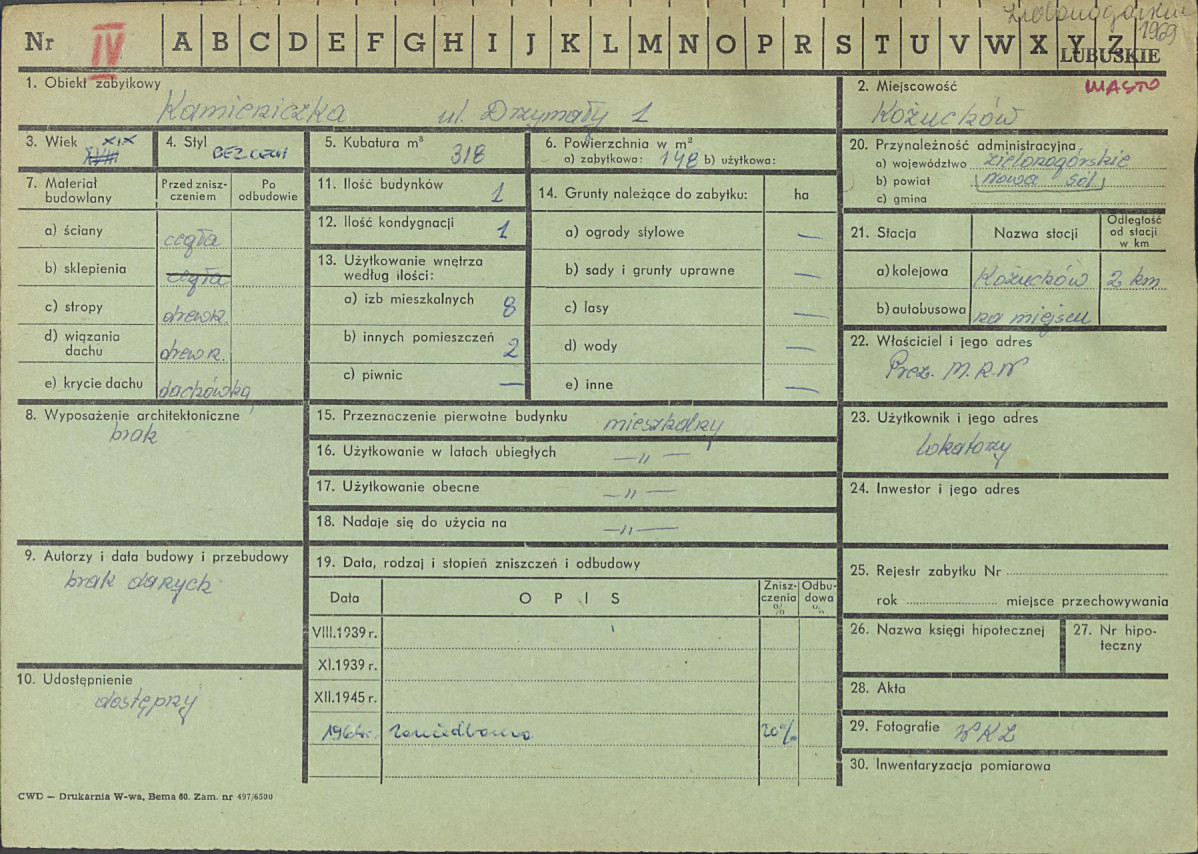 Zielonogórskie
1969
Nr IV A B C D E F G H I J K L M N O P R S T U V W X Y Z
LUBUSKIE
1. Obiekt zabytkowy
Kamieniczka ul. Drzymały 1
2. Miejscowość MIASTO
Kożuchów
3. Wiek XIX
XVIII
4. Styl BEZ CECH
5. Kubatura m³ 318
6. Powierzchnia w m²
a) zabytkowa: 148 b) użytkowa:
20. Przynależność administracyjna
a) województwo zielonogórskie
b) powiat Nowa Sól
c) gmina
7. Materiał budowlany
Przed zniszczeniem
Po odbudowie
a) ściany cegła
b) sklepienia cegła
c) stropy drewn.
d) wiązania dachu drewn.
e) krycie dachu dachówka
11. Ilość budynków 1
12. Ilość kondygnacji 1
13. Użytkowanie wnętrza według ilości:
a) izb mieszkalnych 8
b) innych pomieszczeń 2
c) piwnic —
14. Grunty należące do zabytku: ha
a) ogrody stylowe —
b) sady i grunty uprawne —
c) lasy —
d) wody —
e) inne —
21. Stacja
Nazwa stacji
Odległość od stacji w km
a) kolejowa Kożuchów 2 km
b) autobusowa na miejscu
22. Właściciel i jego adres
Prez. M.R.N
8. Wyposażenie architektoniczne
brak
15. Przeznaczenie pierwotne budynku mieszkalny
16. Użytkowanie w latach ubiegłych —"—
17. Użytkowanie obecne —"—
18. Nadaje się do użycia na —"—
23. Użytkownik i jego adres
lokatorzy
24. Inwestor i jego adres
9. Autorzy i data budowy i przebudowy
brak danych
19. Data, rodzaj i stopień zniszczeń i odbudowy
Data OPIS Zniszczenia % Odbudowa %
VIII.1939 r.
XI.1939 r.
XII.1945 r.
1964r. zaniedbana 20%
25. Rejestr zabytku Nr
rok miejsce przechowywania
26. Nazwa księgi hipotecznej
27. Nr hipoteczny
10. Udostępnienie
dostępny
28. Akta
29. Fotografie WKZ
30. Inwentaryzacja pomiarowa
CWD — Drukarnia W-wa, Bema 60. Zam. nr 497/6500